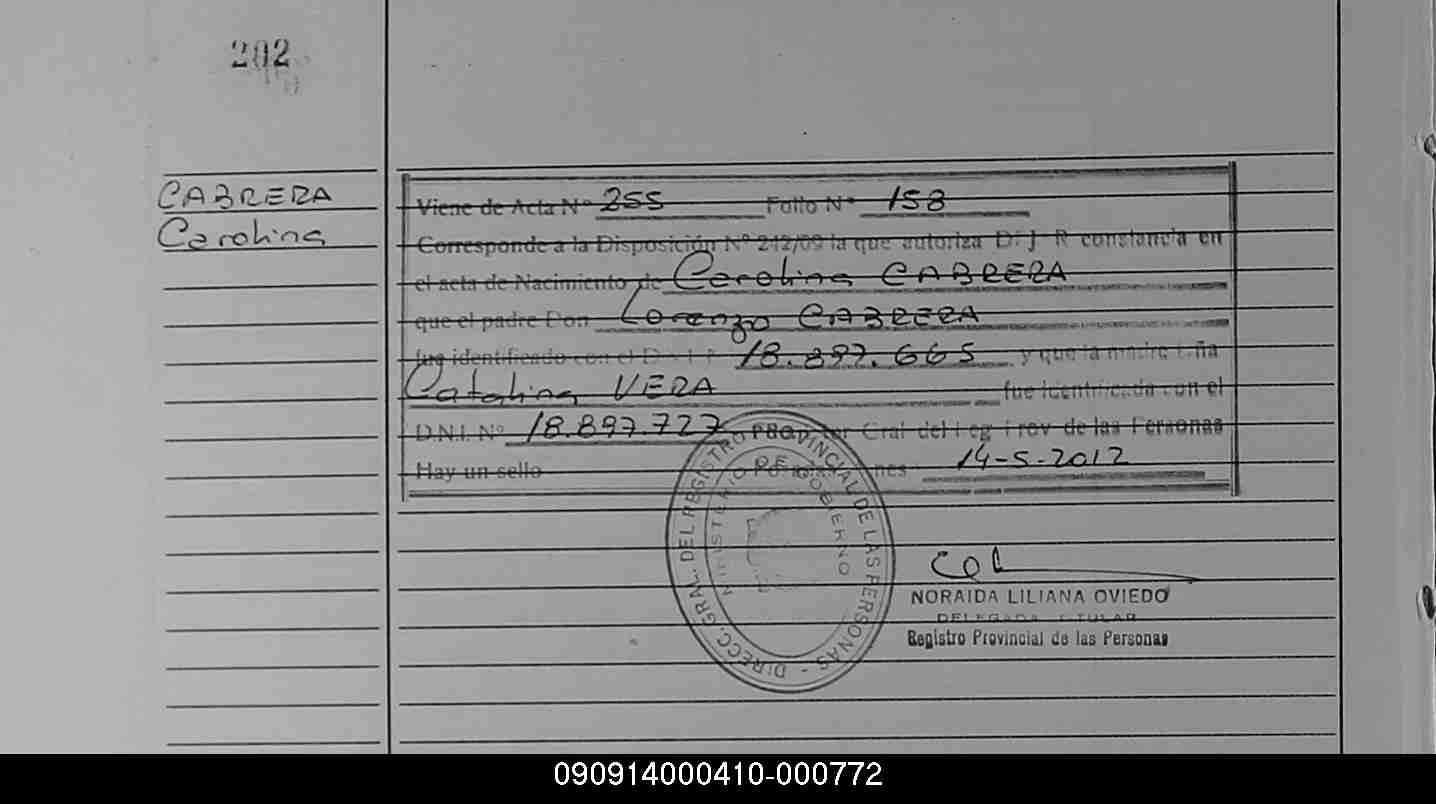 202
CABRERA
Carolina
Viene de Acta Nº 255 Folio Nº 158
Corresponde a la Disposición Nº 212/09 la que autoriza D. J. R constancia en
el acta de Nacimiento de Carolina CABRERA
que el padre Don Lorenzo CABRERA
fue identificado con el D.N.I. Nº 18.897.665 y que la madre Dña
Catalina VERA fue identificada con el
D.N.I. Nº 18.897.727 Gral del Reg Prov de las Personas
Hay un sello 14-5-2012
DIRECC. GRAL. DEL REGISTRO PROVINCIAL DE LAS PERSONAS -
MINISTERIO DE GOBIERNO
NORAIDA LILIANA OVIEDO
DELEGADA TITULAR
Registro Provincial de las Personas
090914000410-000772